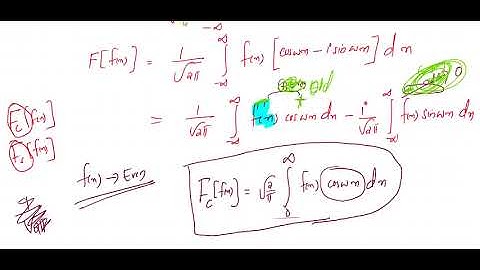 -∞
F[f(x)] = 1/√2π ∫_{-∞}^{∞} f(x) [cos wx - i sin wx] dx
F_c[f(x)] = 1/√2π ∫_{-∞}^{∞} f(x) cos wx dx - i/√2π ∫_{-∞}^{∞} f(x) sin wx dx
odd 0
F_s[f(x)]
f(x) → Even
F_c[f(x)] = √2/π ∫_0^∞ f(x) cos wx dx